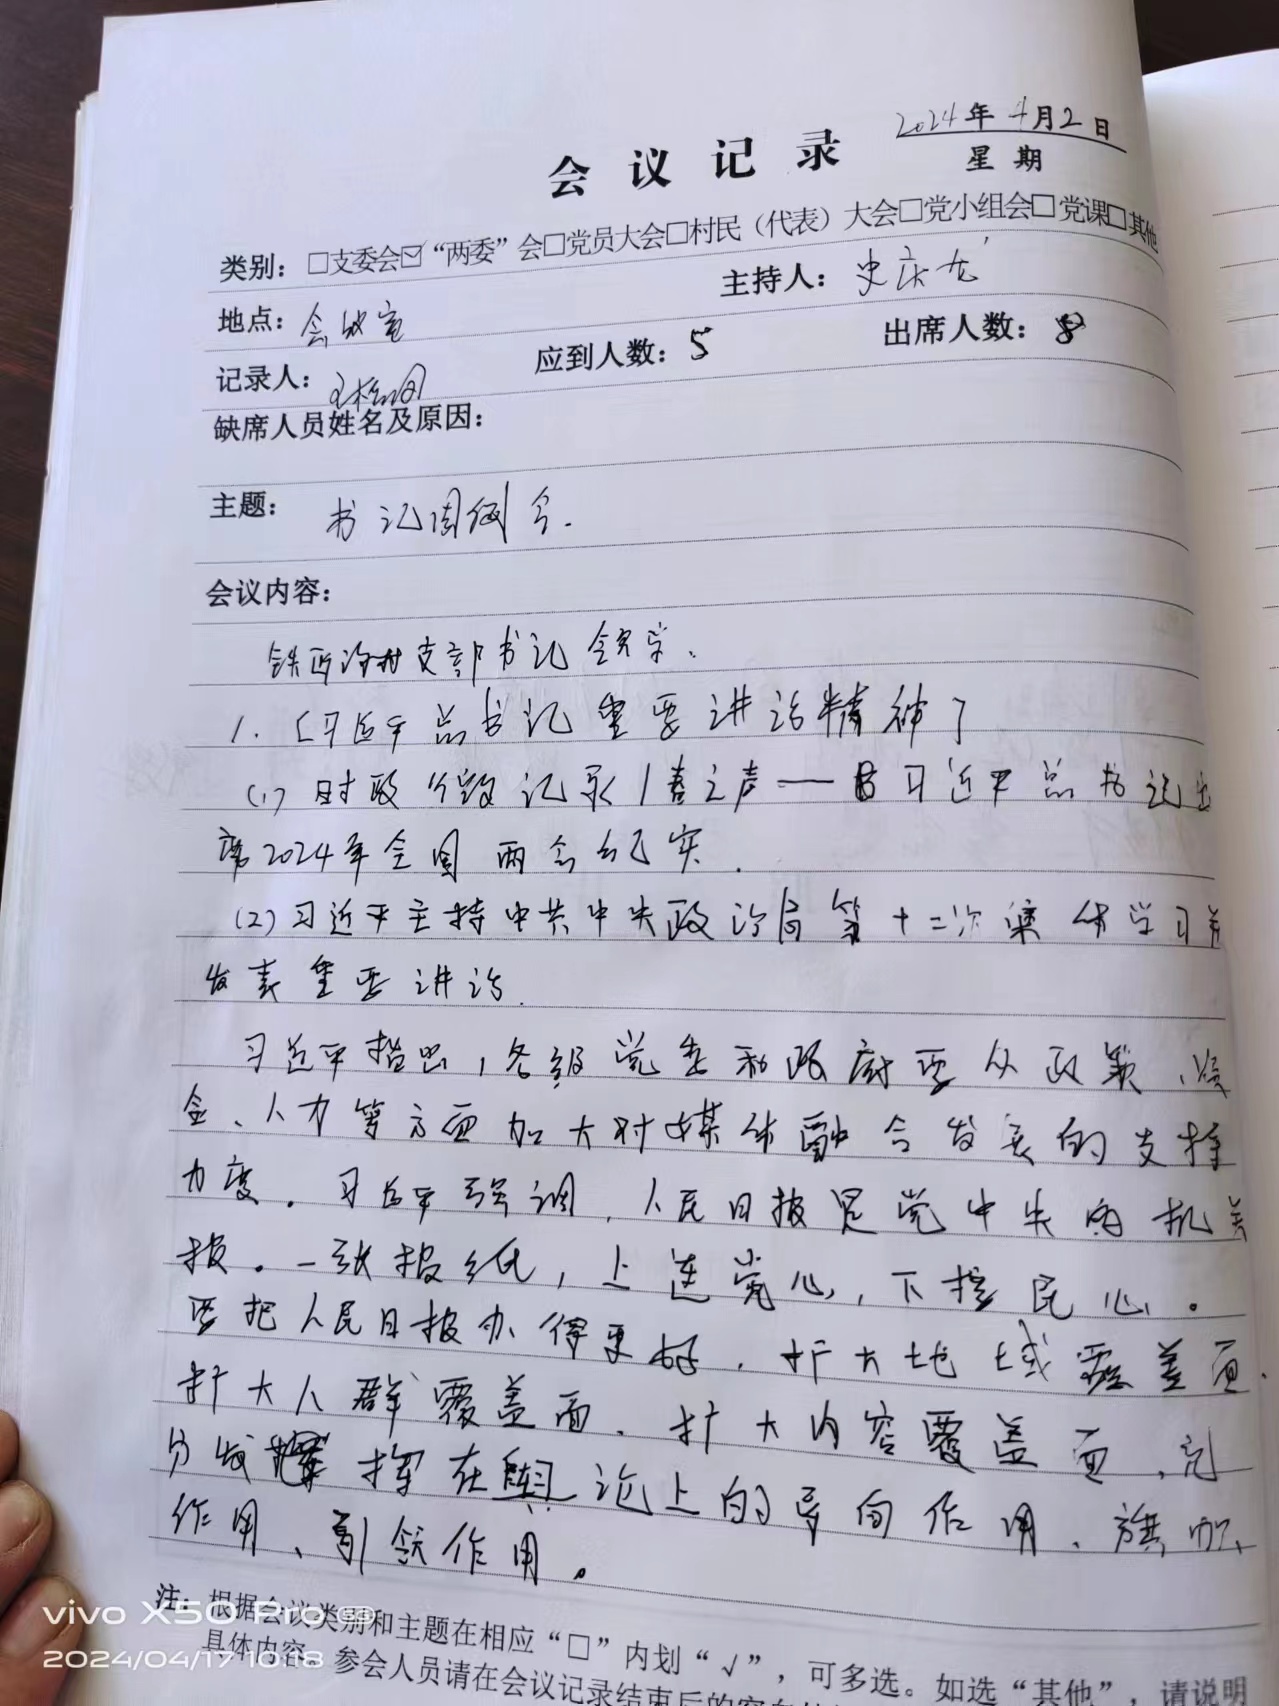 2024年4月2日
会议记录
星期
类别：□支委会☑“两委”会□党员大会□村民（代表）大会□党小组会□党课□其他
地点：会议室 主持人：史庆龙
记录人： 应到人数：5 出席人数：8
缺席人员姓名及原因：
主题：书记周例会.
会议内容：
支部书记
1.《习近平总书记重要讲话精神》
(1)时政微记录|春之声——习近平总书记出
席2024年全国两会纪实.
(2)习近平主持中共中央政治局第十二次集体学习并
发表重要讲话.
习近平指出,各级党委和政府要从政策、资
金、人力等方面加大对媒体融合发展的支持
力度。习近平强调,人民日报是党中央的机关
报。一张报纸,上连党心,下接民心。
要把人民日报办得更好,扩大地域覆盖面.
扩大人群覆盖面、扩大内容覆盖面、充
分发挥在舆论上的导向作用、旗帜
作用、引领作用。
注：根据会议类别和主题在相应“□”内划“√”，可多选。如选“其他”，请说明
具体内容。参会人员请在会议记录结束后的空白
vivo X50 Pro 5G
2024/04/17 10:18